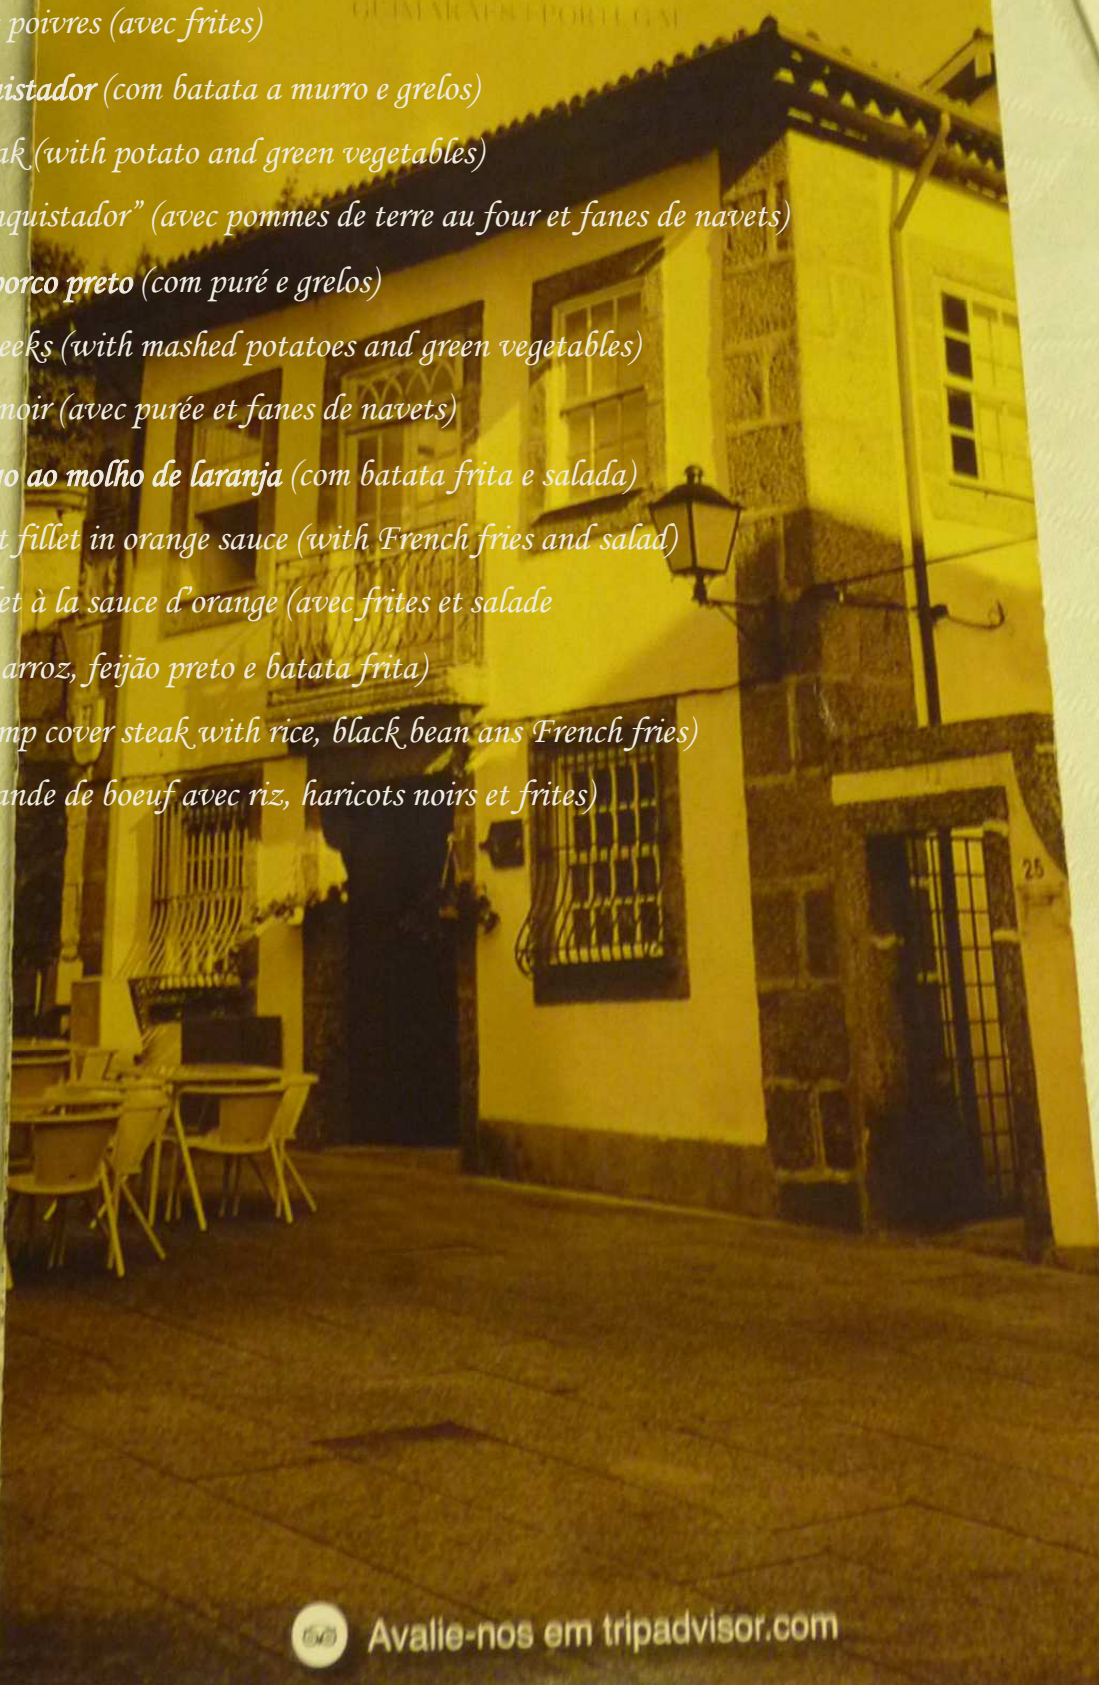 GUIMARÃES | PORTUGAL
poivres (avec frites)
istador (com batata a murro e grelos)
ak (with potato and green vegetables)
nquistador” (avec pommes de terre au four et fanes de navets)
porco preto (com puré e grelos)
eeks (with mashed potatoes and green vegetables)
noir (avec purée et fanes de navets)
go ao molho de laranja (com batata frita e salada)
t fillet in orange sauce (with French fries and salad)
et à la sauce d’orange (avec frites et salade
arroz, feijão preto e batata frita)
mp cover steak with rice, black bean ans French fries)
ande de boeuf avec riz, haricots noirs et frites)
25
Avalie-nos em tripadvisor.com